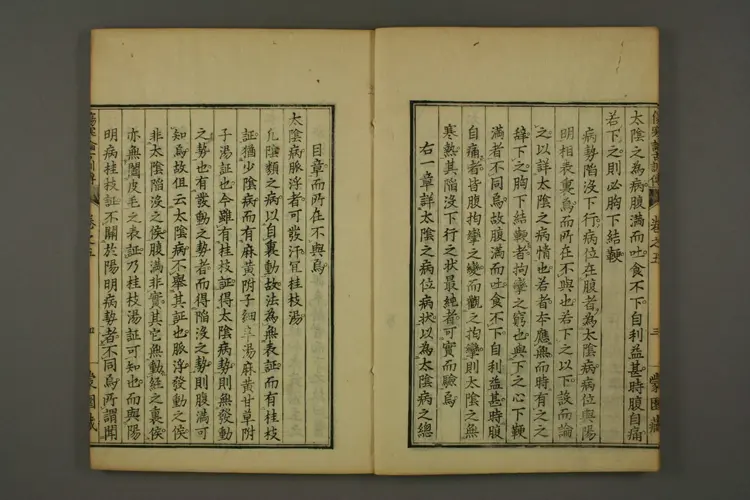 太陰之為病腹滿而吐食不下自利益甚時腹自痛
若下之則必胸下結鞕
病勢陷沒下行病位在腹者為太陰病病位與陽
明相表裏焉而所在不與也若下之以下設而論
之以詳太陰之病情也若者本應無而時有之之
辭下之胸下結鞕者拘攣之窮也與下之心下鞕
滿者不同焉故腹滿而吐食不下自利益甚時腹
自痛者皆腹拘攣之變而觀之拘攣則太陰之無
寒熱其陷沒下行之狀最純者可實而驗焉
右一章詳太陰之病位病狀以為太陰病之總
目章而所在不與焉
太陰病脉浮者可發汗宜桂枝湯
凡陰類之病以自裏動故法為無表証而有桂枝
証猶少陰病而有麻黃附子細辛湯麻黃甘草附
子湯証也今雖有桂枝証得太陰病勢則無發動
之勢也有發動之勢者而得陷沒之勢則腹滿可
知焉故但云太陰病不舉其証也脉浮發動之候
非太陰陷沒之候腹滿非實其它無動經之裏候
亦無闔皮毛之表証乃桂枝湯証可知也而與陽
明病桂枝証不關於陽明病勢者不同焉所謂聞
卷之五